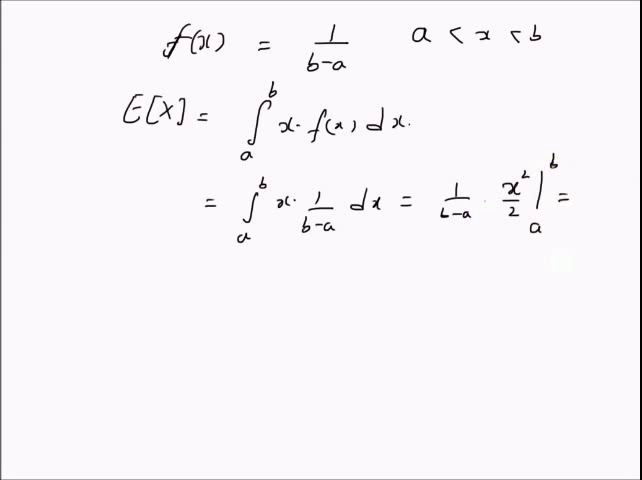 f(x) = 1/(b-a) a < x < b
E[X] = ∫_a^b x· f(x) dx.
= ∫_a^b x· 1/(b-a) dx = 1/(b-a) · x²/2 |_a^b =